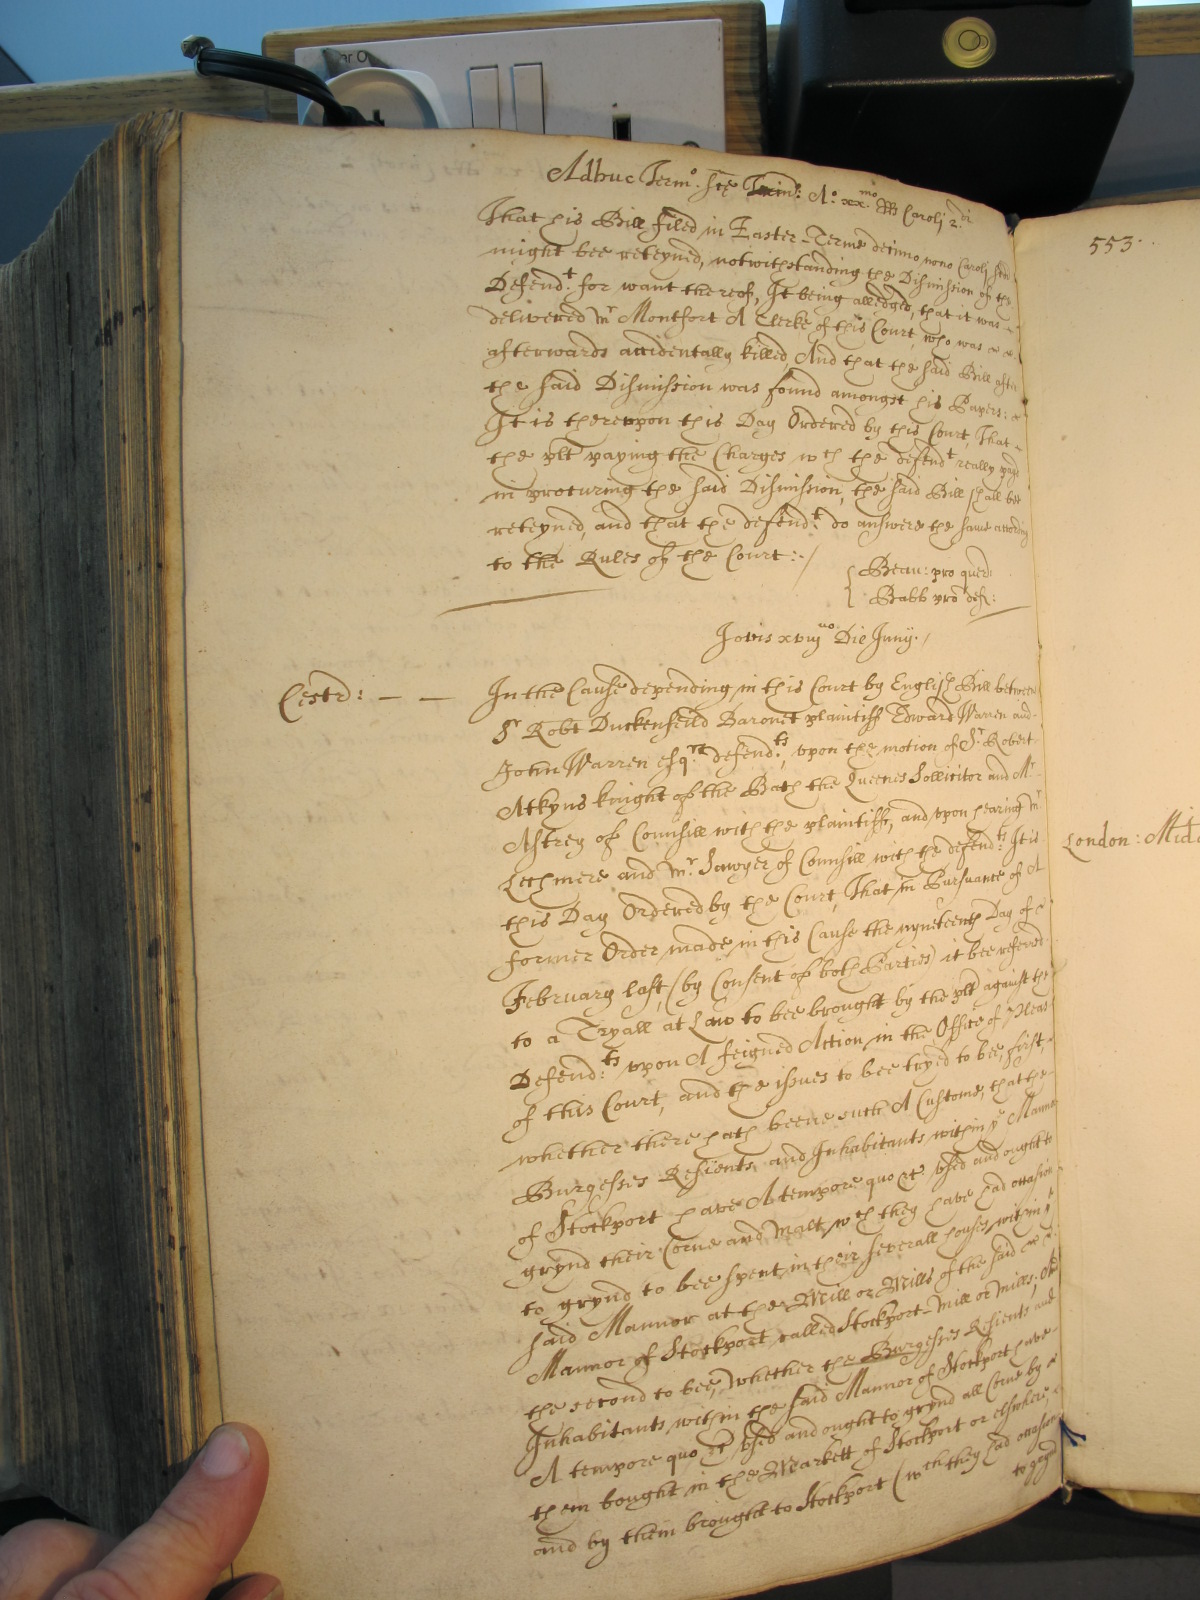 Adhuc Term.o Ste Trin: A.o xx.mo RRs Caroli 2.di
That his Bill filed in Easter-Terme decimo nono Caroli
might bee reteyned, notwithstanding the Dismission of the
Defend.t for want thereof, It being alledged, that it was
delivered Mr Montfort A Clerke of this Court, who was
afterwards accidentally killed, And that the said Bill after
the said Dismission was found amongst his Papers:
It is thereupon this Day Ordered by this Court, That
the plt paying the Charges wch the defendt really payd
in procuring the said Dismission, the said Bill shall bee
reteyned, and that the defend.t do answere the same according
to the Rules of the Court:
Beau: pro quer
Babb pro def:
Jovis xviijuo. Die Junij.
Cestr:
In the Cause depending in this Court by English Bill betweene
Sr Robt Duckenfeild Baronet plaintiff Edward Warren and
John Warren esq.rs defend.ts, upon the motion of Sr. Robert
Atkyns knight of the Bath the Queenes Sollicitor and Mr
Astrey of Counsill with the plaintiff, and upon hearing Mr
Lechmere and Mr Sawyer of Counsill with the defend.ts It is
this Day Ordered by the Court, That in Pursuance of A
former Order made in this Cause the nyneteenth Day of
February last, (by Consent of both Parties) it bee referred
to a Tryall at Law to bee brought by the plt against the
Defend.ts upon A feigned Action in the Office of Pleas
of this Court, and the issues to bee tryed to bee, first,
whether there hath beene such A Custome, that the
Burgesses Resients and Inhabitants within ye Mannor
of Stockport have A tempore quo &c used and ought to
grynd their Corne and Malt, wch they have had occasion
to grynd to bee spent in their severall houses within ye
said Mannor at the Mill or Mills of the said
Mannor of Stockport called Stockport-Mill or Mills; And
the second to bee, whether the Burgesses Resients and
Inhabitants within the said Mannor of Stockport have
A tempore quo &c used and ought to grynd all Corne by
them bought in the Markett of Stockport or elsewhere,
and by them brought to Stockport (wch they had occasion
to grynd
553.
London: Midd